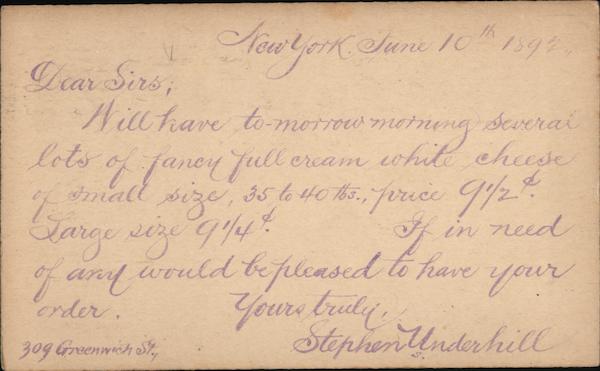 New York, June 10th 189
Dear Sirs;
Will have to-morrow morning several
lots of fancy full cream white cheese
of small size, 35 to 40 lbs., price 9 1/2¢.
Large size 9 1/4¢. If in need
of any would be pleased to have your
order. Yours truly,
309 Greenwich St., Stephen Underhill